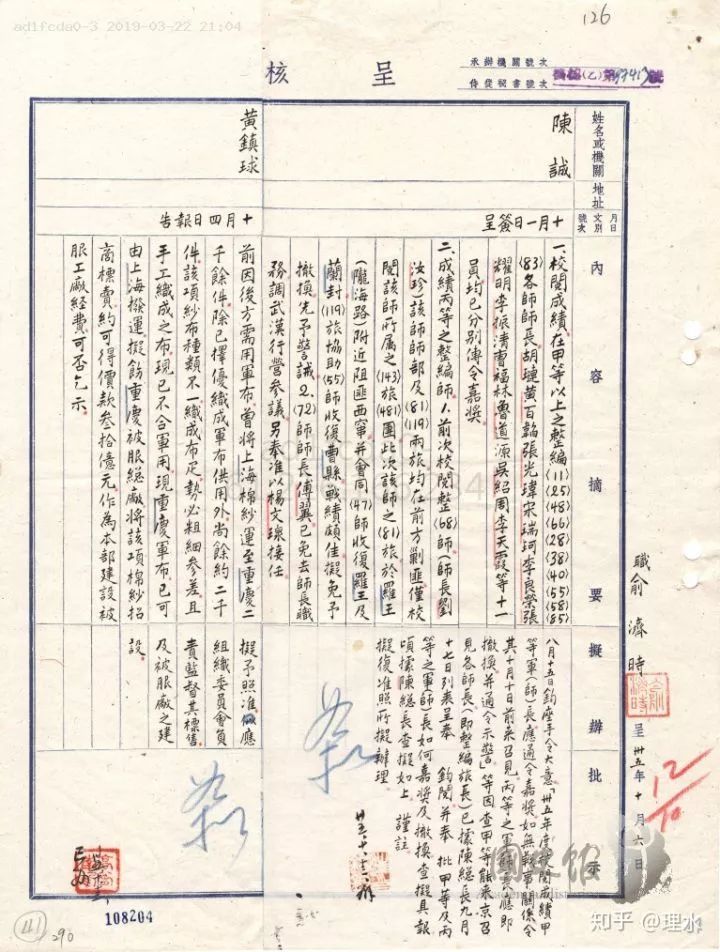 ad1fcda0-3 2019-03-22 21:04
126
呈核
承辦機關號次
侍從秘書號次
姓名或機關
地址
月日
文別
號次
內容摘要
擬辦
批示
職俞濟時
呈卅五年十月六日
12/10
陳誠
十月一日簽呈
一、校閱成績在甲等以上之整編(11)(25)
(83)各師師長胡璉黃百韜張光瑋宋瑞珂李良榮張(48)(66)(28)(38)(40)(55)(58)(85)
耀明李振清曹福林魯道源吳紹周李天霞等十一
員均已分別傳令嘉獎
二、成績丙等之整編師1.前次校閱整(68)師(師長劉
汝珍)該師師部及(81)(119)兩旅均在前方剿匪僅校
閱該師所屬之(143)旅(481)團此次該師之(81)旅於羅王
(隴海路)附近阻匪西竄并會同(47)師收復羅王及
蘭封(119)旅協助(55)師收復曹縣戰績頗佳擬免予
撤換先予警誡2.(72)師師長傅翼已免去師長職
務調武漢行營參議另奉准以楊文瑔接任
八月十五日鈞座手令大意「卅五年度校閱成績甲
等軍(師)長應通令嘉獎如無戰事關係令
其十月十日前來召見丙等之軍師長應即
撤換并通令示警」等因查甲等能來京召
見各師長(即整編旅長)已據陳總長九月
十七日列表呈奉 鈞閱并奉 批甲等及丙
等之軍(師)長如何嘉獎及撤換查擬具報
頃據陳總長查擬如上 謹註
擬復准照所擬辦理
黃鎮球
十月四日報告
前因後方需用軍布曾將上海棉紗運至重慶二
千餘件除已擇優織成軍布供用外尚餘約二千
件該項紗布種類不一織成布疋勢必粗細參差且
手工織成之布現已不合軍用現重慶軍布已可
由上海撥運擬飭重慶被服總廠將該項棉紗招
商標賣約可得價款叁拾億元作為本部建設被
服工廠經費可否乞示
擬予照准應
組織委員會負
責監督其標售
及被服廠之建
設
108204
290
知乎 @理水